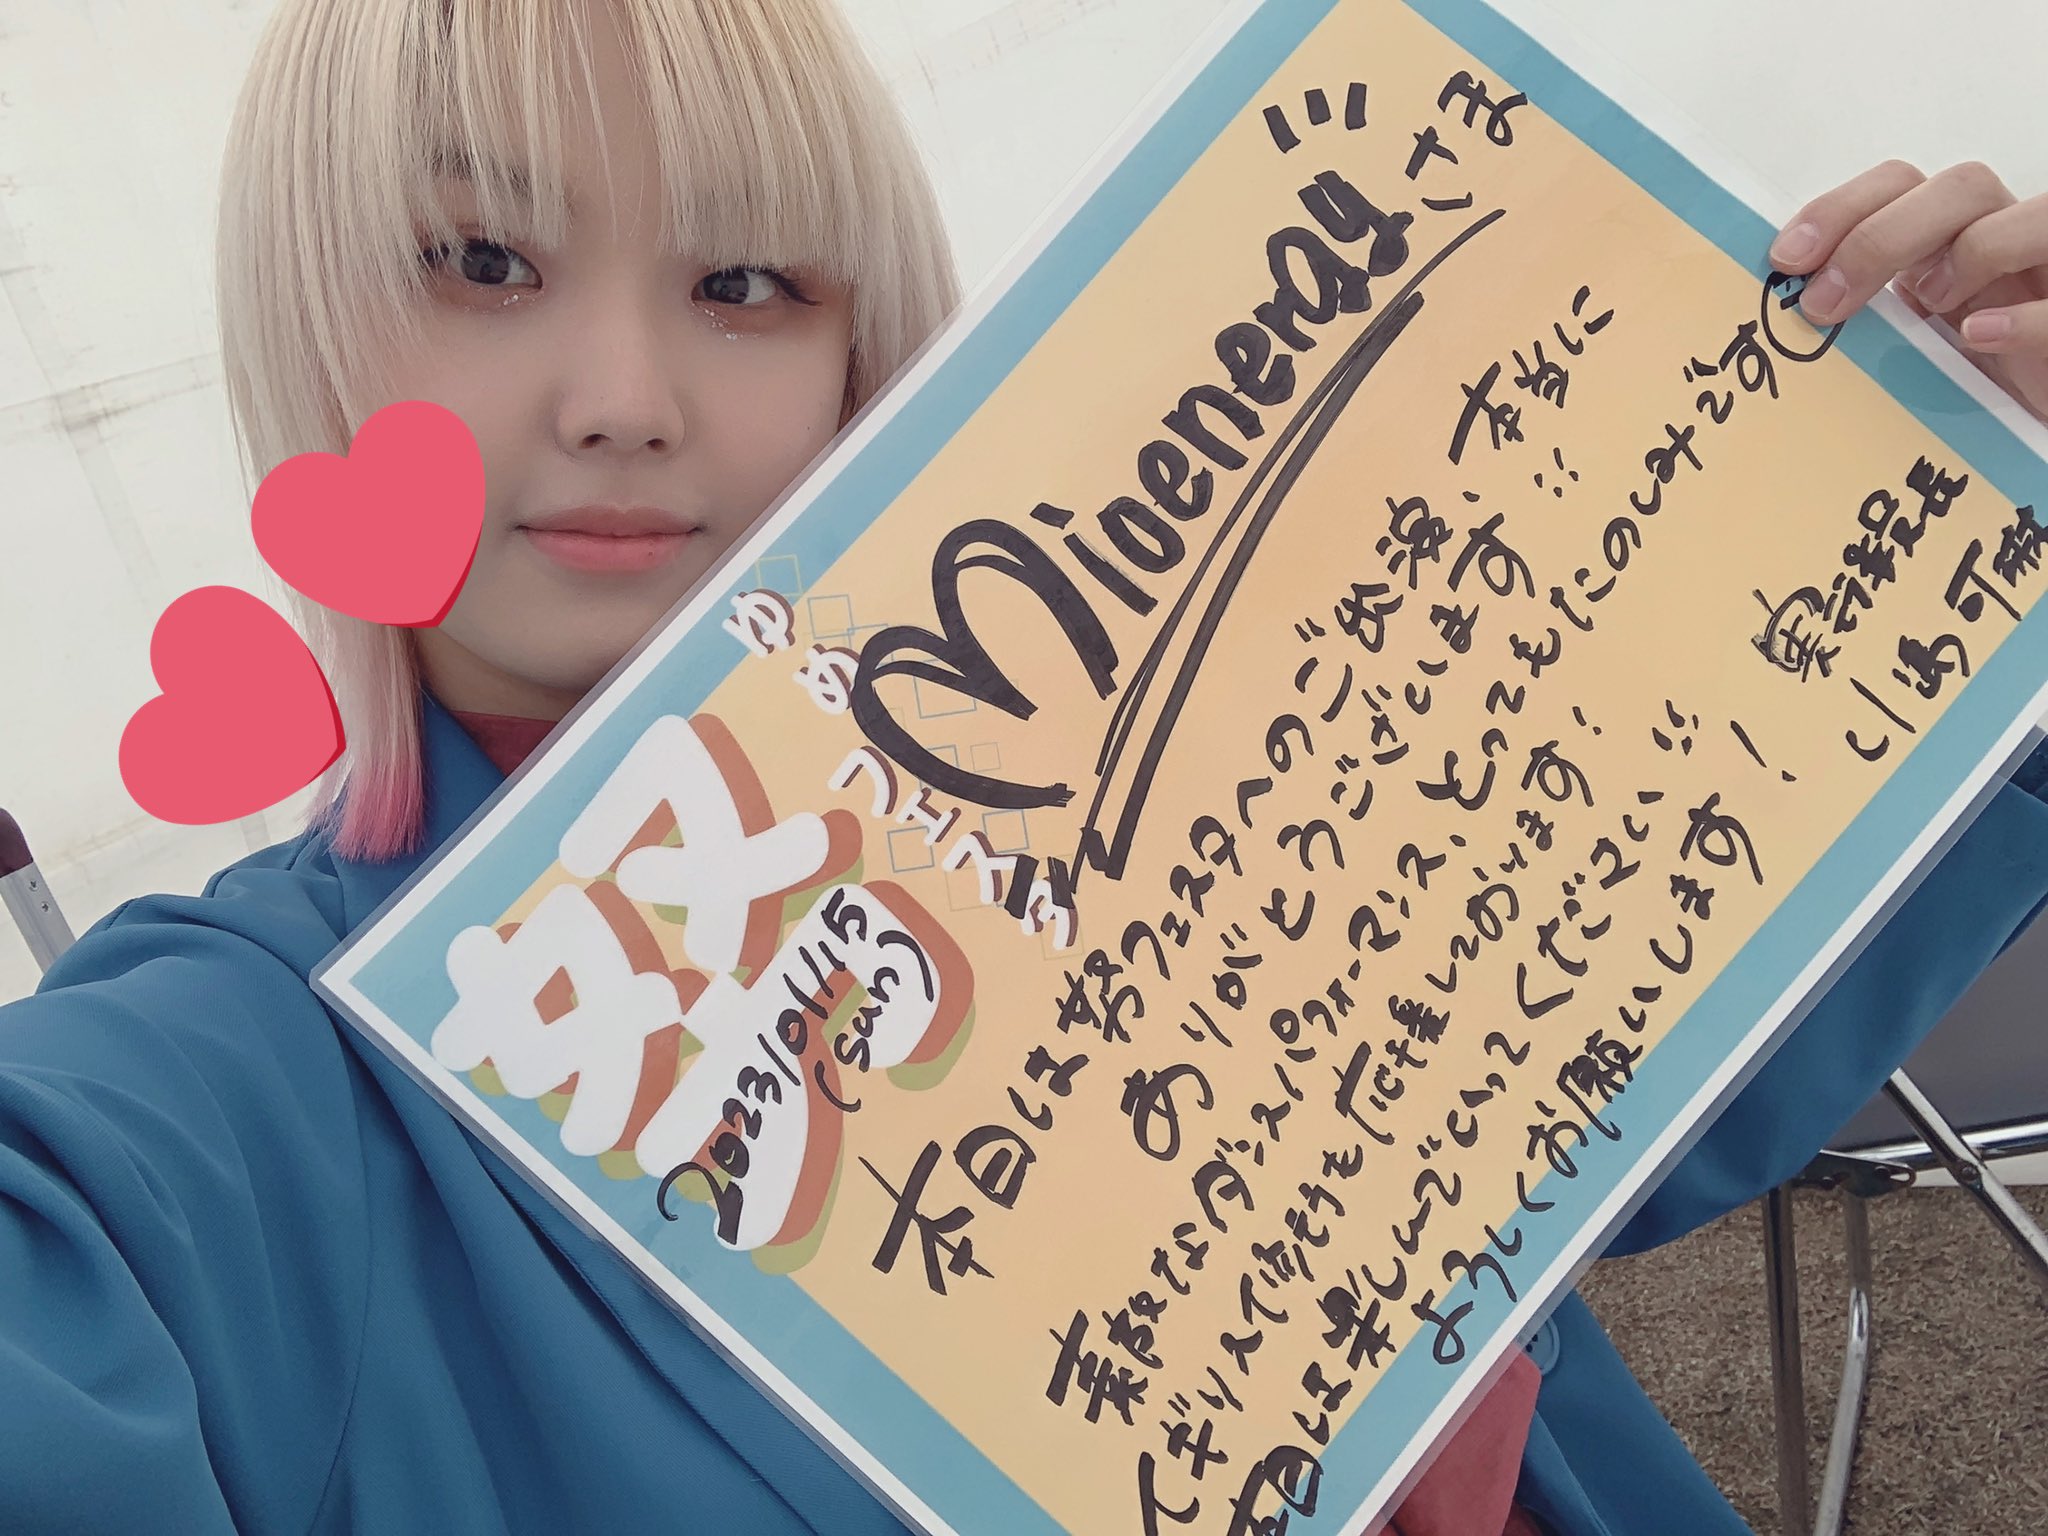 Mioenergyさま
努
ゆめフェスタ
2023/01/15
(sun)
本日は努フェスタへのご出演、本当に
ありがとうございます!!
素敵なダンスパフォーマンス、とってもたのしみです
イギリスで活もうを応援しております!
本日は楽しんでいってください!!
よろしくお願いします!
実行委員長
川嶋可